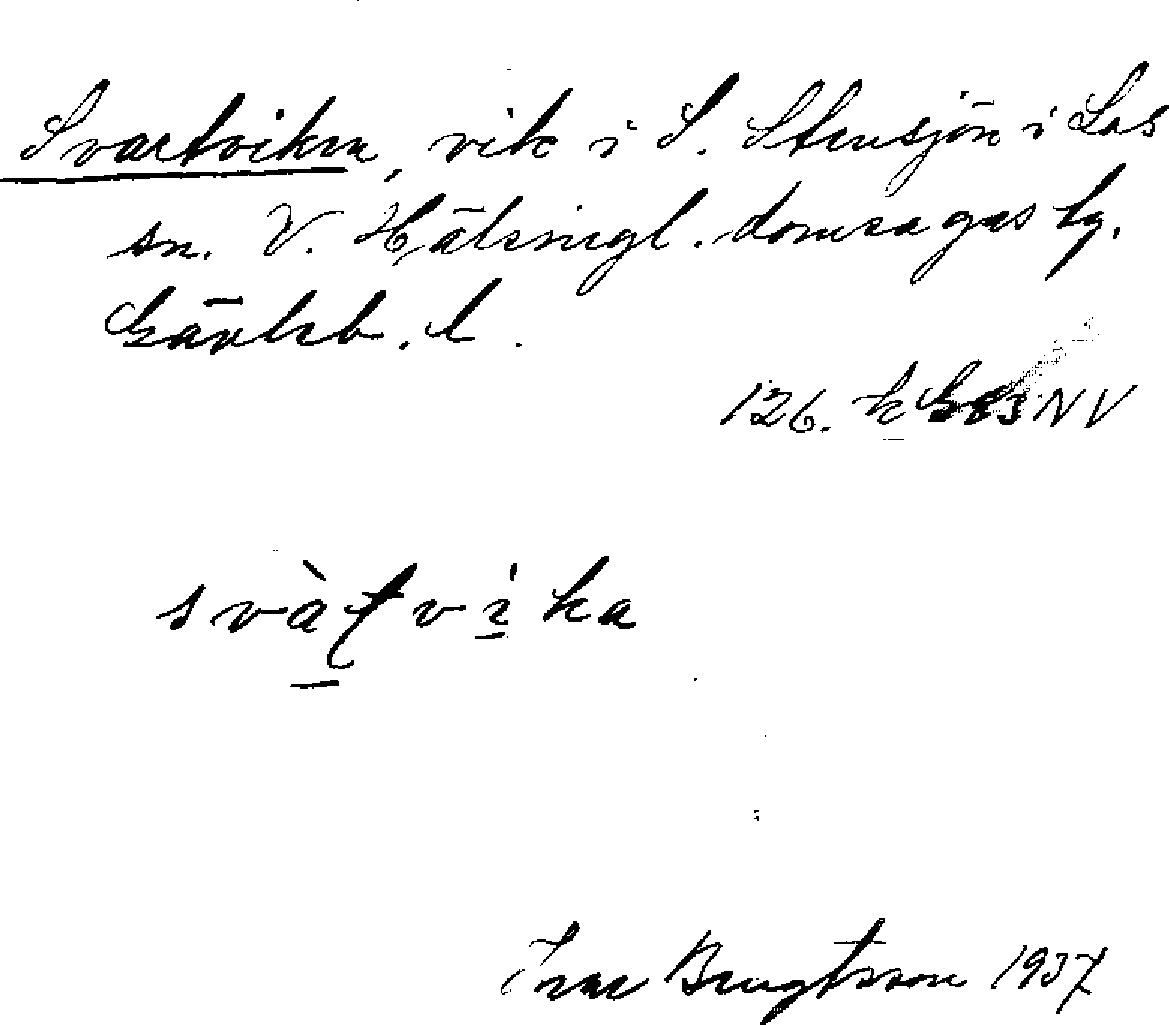 Svartviken, vik i S. Stensjön i Los
sn. V. Hälsingl. domsagas tg.
Gävleb. l.
126. NV
svàtvika
Ivar Bengtsson 1937